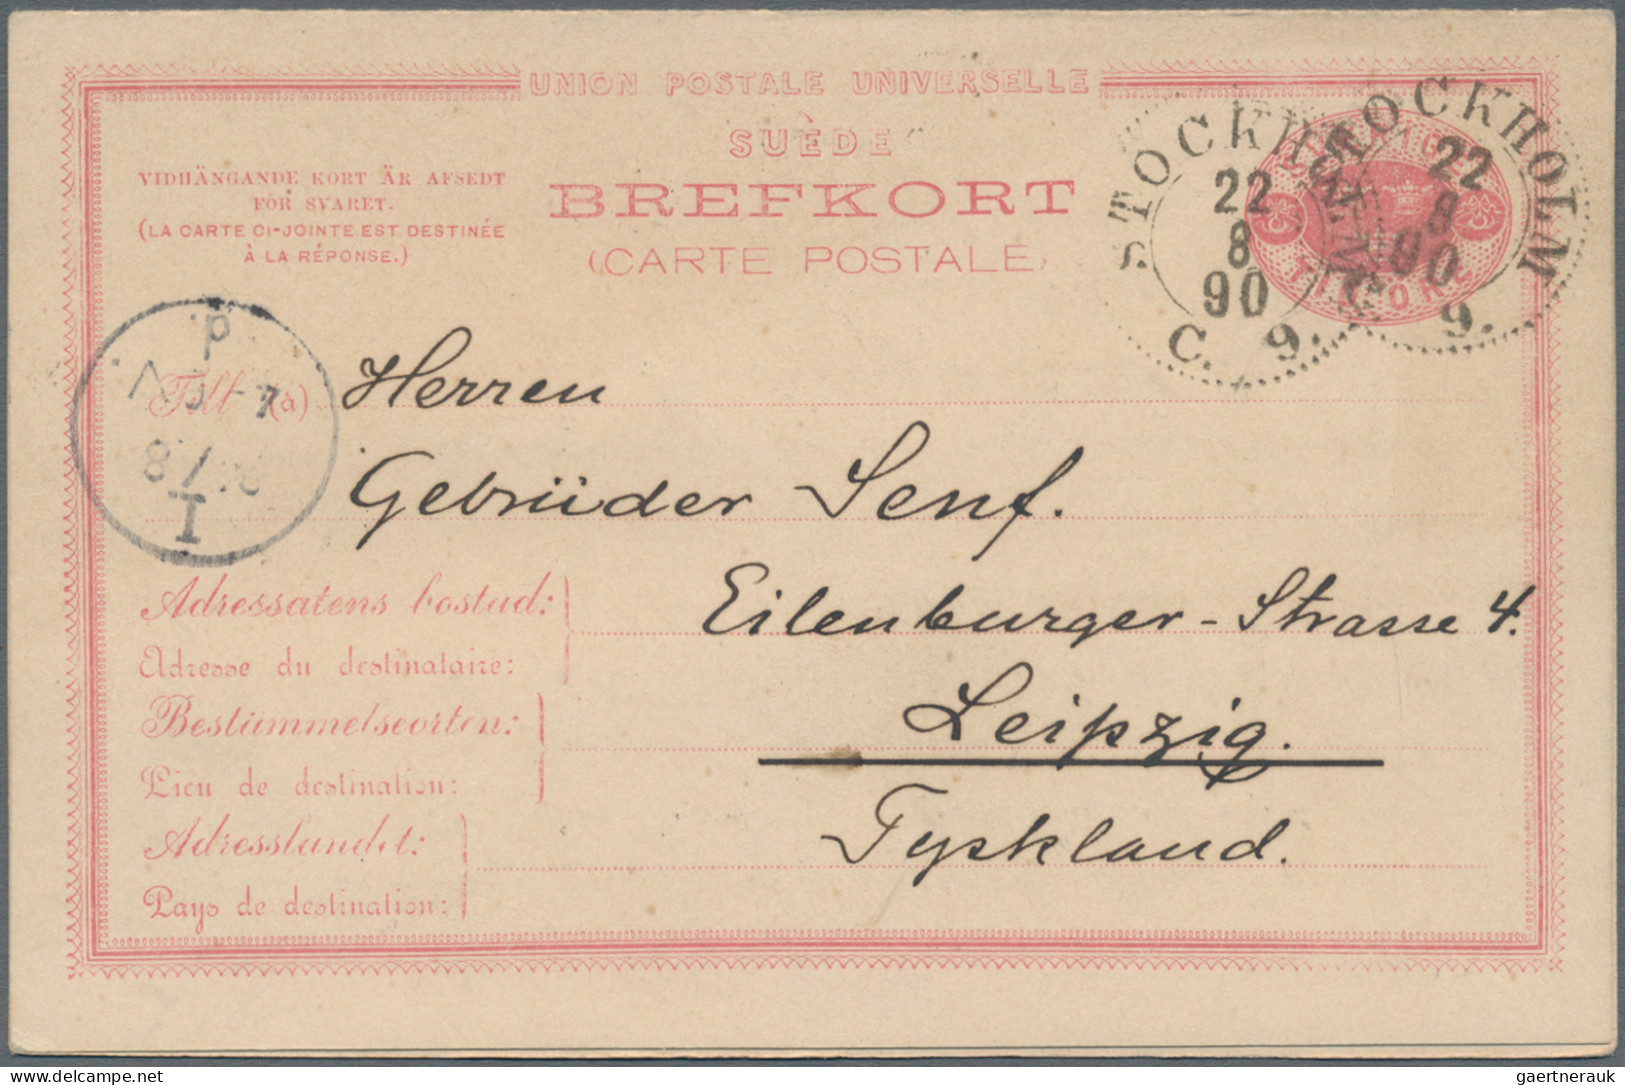 UNION POSTALE UNIVERSELLE
SUÈDE
BREFKORT
(CARTE POSTALE)
VIDHÄNGANDE KORT ÄR AFSEDT
FÖR SVARET.
(LA CARTE CI-JOINTE EST DESTINÉE
À LA RÉPONSE.)
STOCKHOLM
22
8
90
C. 9.
STOCKHOLM
22
8
90
C. 9.
TIO ÖRE
Till (à) Herren
Gebrüder Senf.
Eilenburger-Strasse 4.
Leipzig.
Tyskland.
Adressatens bostad:
Adresse du destinataire:
Bestämmelseorten:
Lieu de destination:
Adresslandet:
Pays de destination:
gaertnerauk